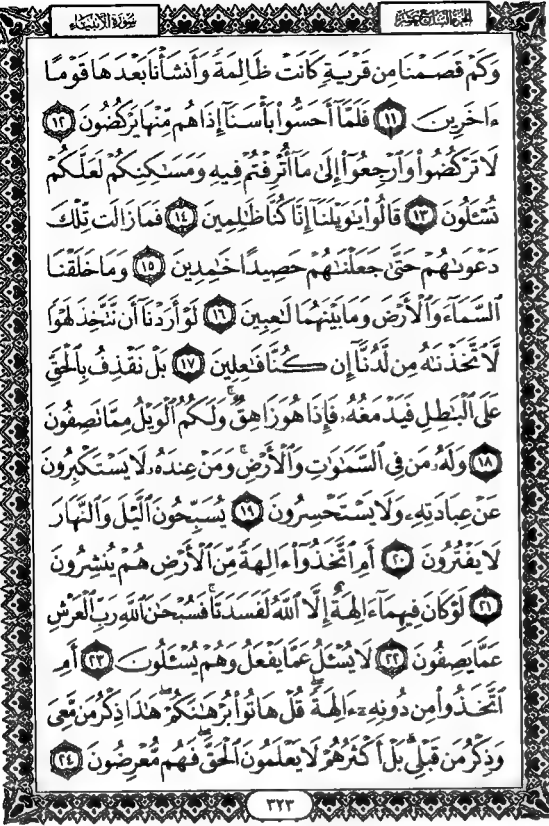 سُورَةُ الأَنبِيَاء
الجُزْءُ السَّابِعَ عَشَرَ
وَكَمْ قَصَمْنَا مِن قَرْيَةٍ كَانَتْ ظَالِمَةً وَأَنشَأْنَا بَعْدَهَا قَوْمًا
ءَاخَرِينَ ١١ فَلَمَّآ أَحَسُّوا۟ بَأْسَنَآ إِذَا هُم مِّنْهَا يَرْكُضُونَ ١٢
لَا تَرْكُضُوا۟ وَٱرْجِعُوٓا۟ إِلَىٰ مَآ أُتْرِفْتُمْ فِيهِ وَمَسَـٰكِنِكُمْ لَعَلَّكُمْ
تُسْـَٔلُونَ ١٣ قَالُوا۟ يَـٰوَيْلَنَآ إِنَّا كُنَّا ظَـٰلِمِينَ ١٤ فَمَا زَالَت تِّلْكَ
دَعْوَىٰهُمْ حَتَّىٰ جَعَلْنَـٰهُمْ حَصِيدًا خَـٰمِدِينَ ١٥ وَمَا خَلَقْنَا
ٱلسَّمَآءَ وَٱلْأَرْضَ وَمَا بَيْنَهُمَا لَـٰعِبِينَ ١٦ لَوْ أَرَدْنَآ أَن نَّتَّخِذَ لَهْوًا
لَّٱتَّخَذْنَـٰهُ مِن لَّدُنَّآ إِن كُنَّا فَـٰعِلِينَ ١٧ بَلْ نَقْذِفُ بِٱلْحَقِّ
عَلَى ٱلْبَـٰطِلِ فَيَدْمَغُهُۥ فَإِذَا هُوَ زَاهِقٌ ۚ وَلَكُمُ ٱلْوَيْلُ مِمَّا تَصِفُونَ
١٨ وَلَهُۥ مَن فِى ٱلسَّمَـٰوَٰتِ وَٱلْأَرْضِ ۚ وَمَنْ عِندَهُۥ لَا يَسْتَكْبِرُونَ
عَنْ عِبَادَتِهِۦ وَلَا يَسْتَحْسِرُونَ ١٩ يُسَبِّحُونَ ٱلَّيْلَ وَٱلنَّهَارَ
لَا يَفْتُرُونَ ٢٠ أَمِ ٱتَّخَذُوٓا۟ ءَالِهَةً مِّنَ ٱلْأَرْضِ هُمْ يُنشِرُونَ
٢١ لَوْ كَانَ فِيهِمَآ ءَالِهَةٌ إِلَّا ٱللَّهُ لَفَسَدَتَا ۚ فَسُبْحَـٰنَ ٱللَّهِ رَبِّ ٱلْعَرْشِ
عَمَّا يَصِفُونَ ٢٢ لَا يُسْـَٔلُ عَمَّا يَفْعَلُ وَهُمْ يُسْـَٔلُونَ ٢٣ أَمِ
ٱتَّخَذُوا۟ مِن دُونِهِۦٓ ءَالِهَةً ۖ قُلْ هَاتُوا۟ بُرْهَـٰنَكُمْ ۖ هَـٰذَا ذِكْرُ مَن مَّعِىَ
وَذِكْرُ مَن قَبْلِى ۗ بَلْ أَكْثَرُهُمْ لَا يَعْلَمُونَ ٱلْحَقَّ ۖ فَهُم مُّعْرِضُونَ ٢٤
٣٢٣